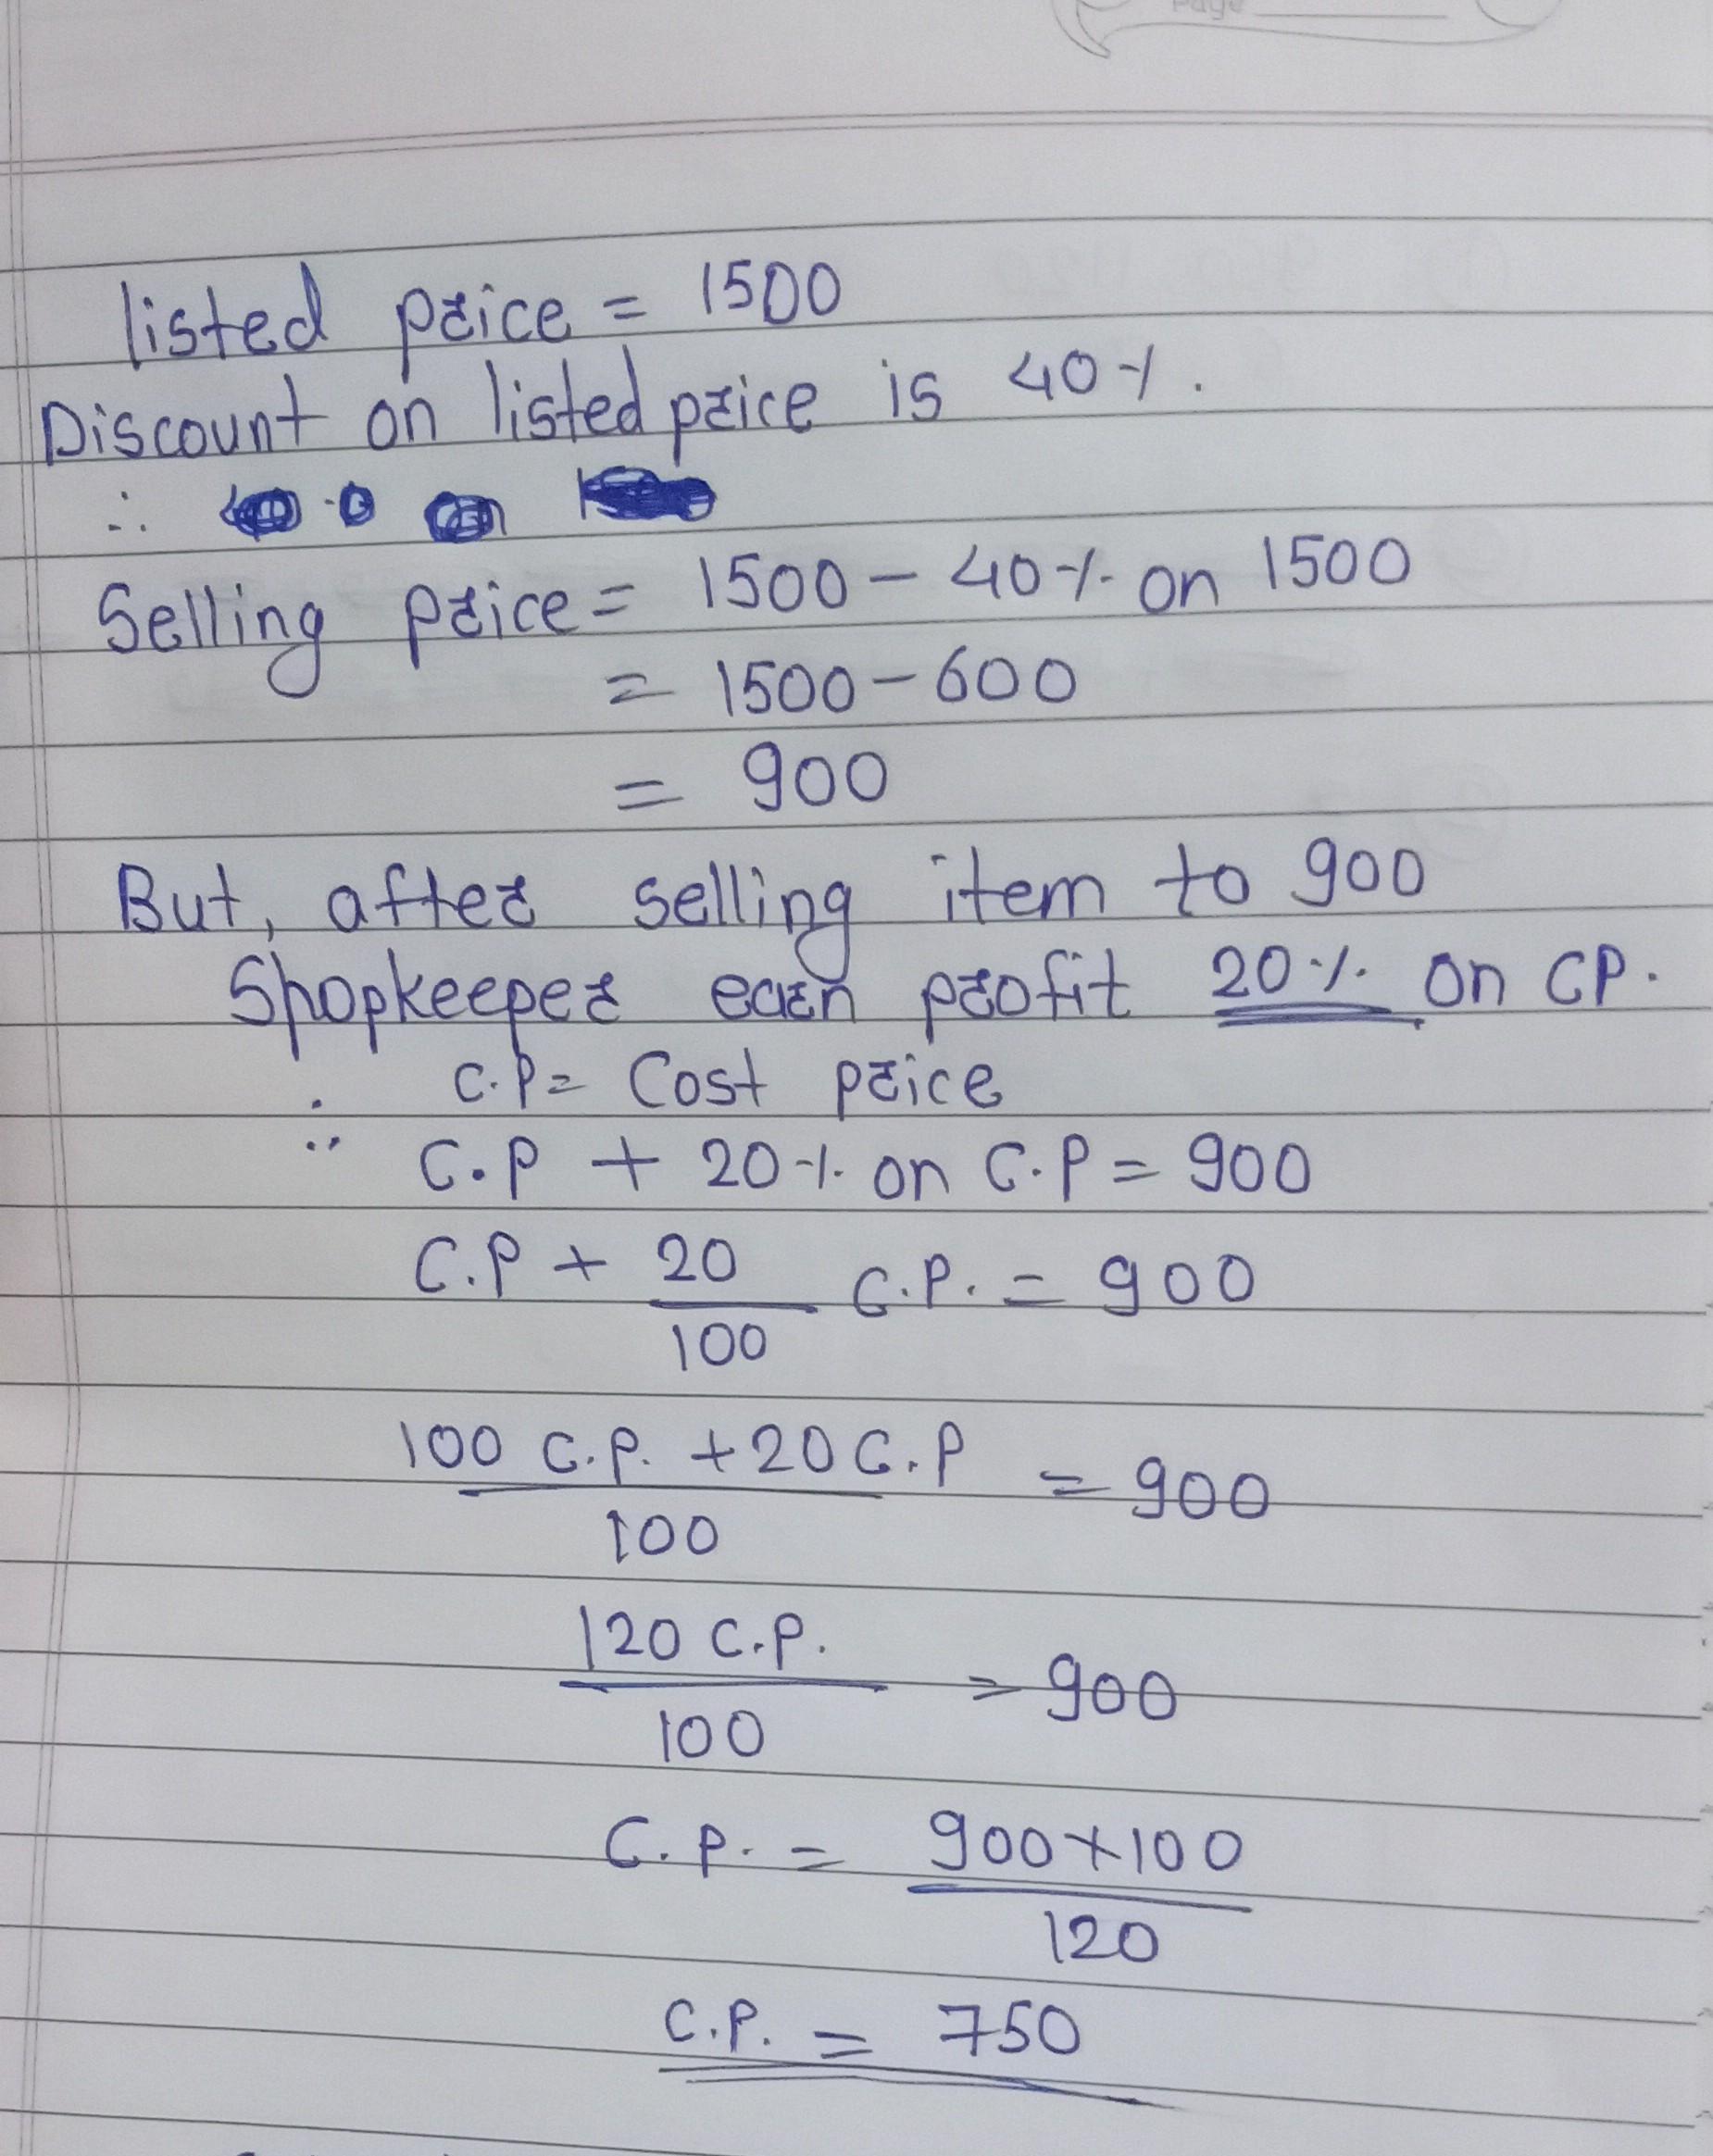 Page
listed price = 1500
Discount on listed price is 40%.
∴
Selling price = 1500 - 40% on 1500
= 1500 - 600
= 900
But, after selling item to 900
Shopkeeper earn profit 20% on CP.
C.P = Cost price
∴ C.P + 20% on C.P = 900
C.P + 20/100 C.P. = 900
100 C.P. + 20 C.P / 100 = 900
120 C.P. / 100 = 900
C.P. = 900 × 100 / 120
C.P. = 750